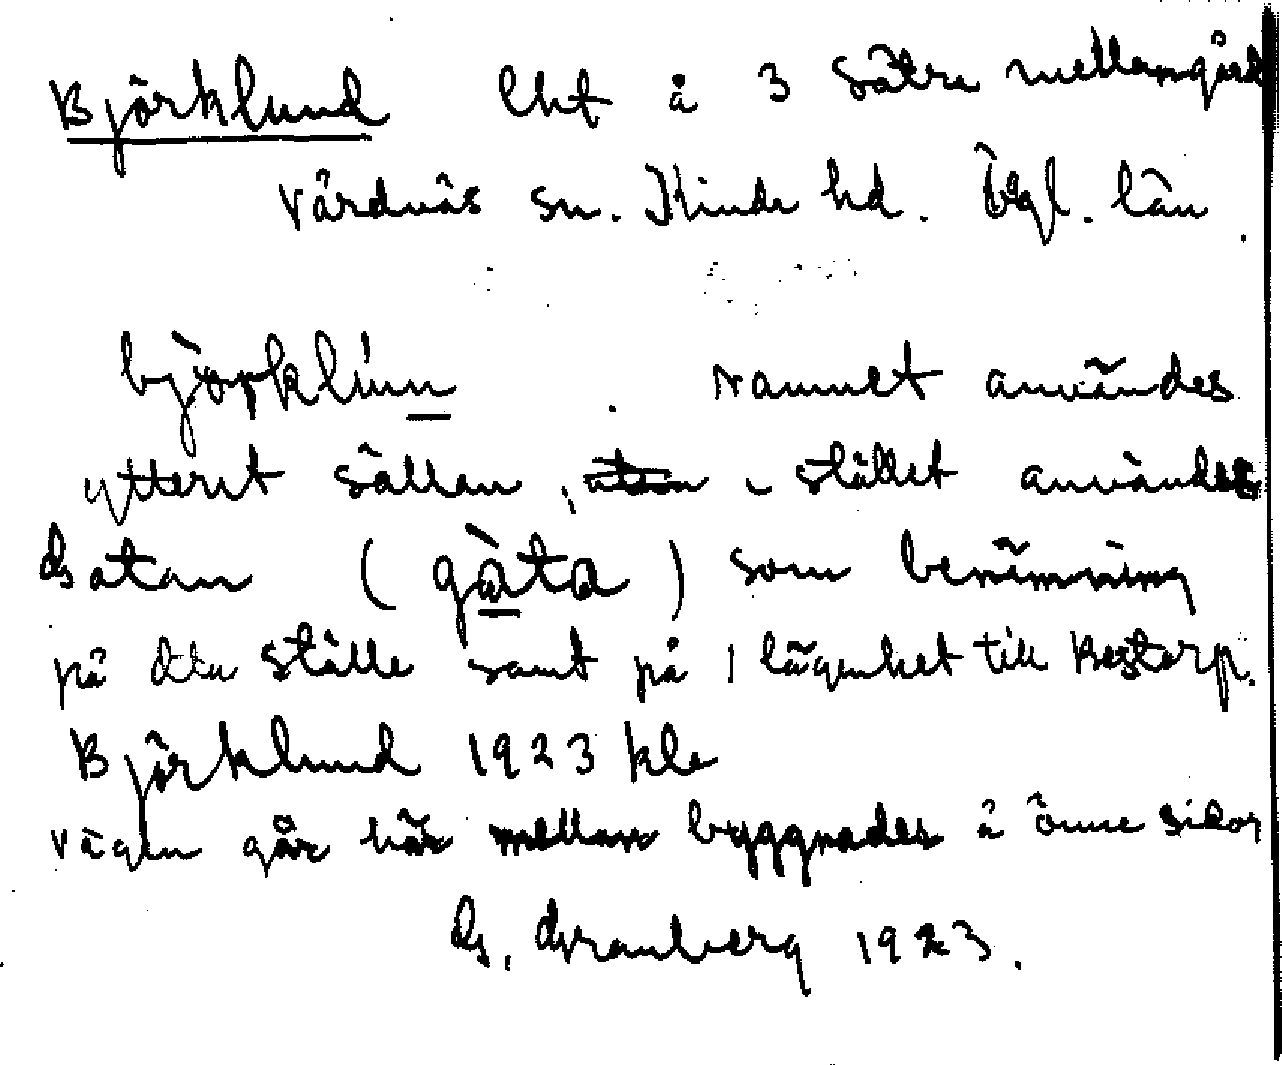 Björklund lht å 3 Sätre mellangård
Vårdnäs sn. Kinda hd. Ögl. län.
björklunn Namnet användes
ytterst sällan, i stället användes
Gatan (gàta) som benämning
på detta ställe samt på 1 lägenhet till Bestorp.
Björklund 1923 kla
vägen går här mellan byggnader å ömse sidor
G. Granberg 1923.